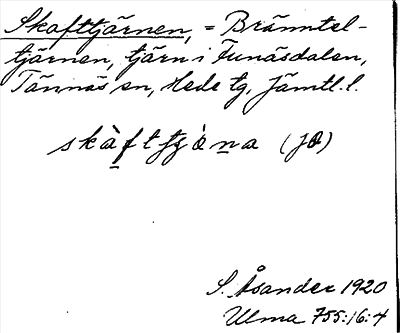 Skafttjärnen, = Bränntel-
tjärnen, tjärn i Funäsdalen,
Tännäs sn, Hede tg, Jämtl. l.
skàftjȯna (JO)
S. Åsander 1920
Ulma 755:16:4